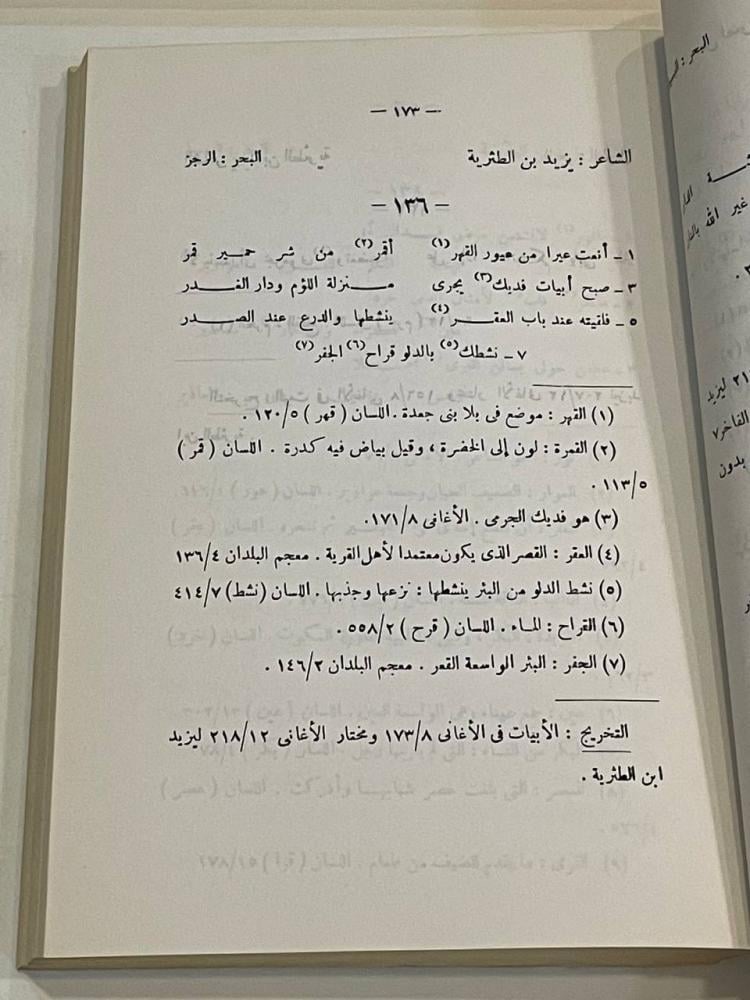 — ١٧٣ —
الشاعر : يزيد بن الطثرية البحر : الرجز
— ١٣٦ —
١ ـ أنعت عيرا من عيور القهر(١) أقمر(٢) من شر حمير قمر
٣ ـ صبح أبيات فديك(٣) يجرى منزلة اللؤم ودار الغدر
٥ ـ فلقيته عند باب العقر(٤) ينشطها والدرع عند الصدر
٧ ـ نشطك(٥) بالدلو قراح(٦) الجفر(٧)
(١) القهر : موضع فى بلا بنى جعدة . اللسان ( قهر ) ١٢٠/٥ .
(٢) القمرة : لون إلى الخضرة ، وقيل بياض فيه كدرة . اللسان ( قمر )
١١٣/٥ .
(٣) هو فديك الجرمى . الأغانى ١٧١/٨.
(٤) العقر : القصر الذى يكون معتمدا لأهل القرية . معجم البلدان ١٣٦/٤
(٥) نشط الدلو من البئر ينشطها : نزعها وجذبها . اللسان (نشط) ٤١٤/٧
(٦) القراح : الماء . اللسان ( قرح ) ٥٥٨/٢ .
(٧) الجفر : البئر الواسعة القعر . معجم البلدان ١٤٦/٢ .
التخريج : الأبيات فى الأغانى ١٧٣/٨ ومختار الأغانى ٢١٨/١٢ ليزيد
ابن الطثرية .
البحر :
غير الله
ليزيد
الفاخر٧
بدون